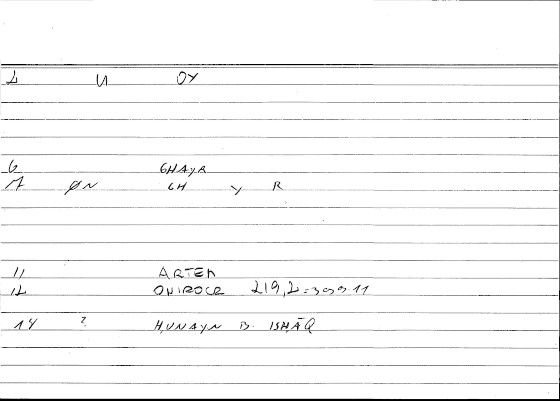 2 N OY
6 GHAYR
7 ØN GH Y R
11 ARTEM
12 ONIROCR 219,2=399.11
14 ? HUNAYN B. ISHĀQ